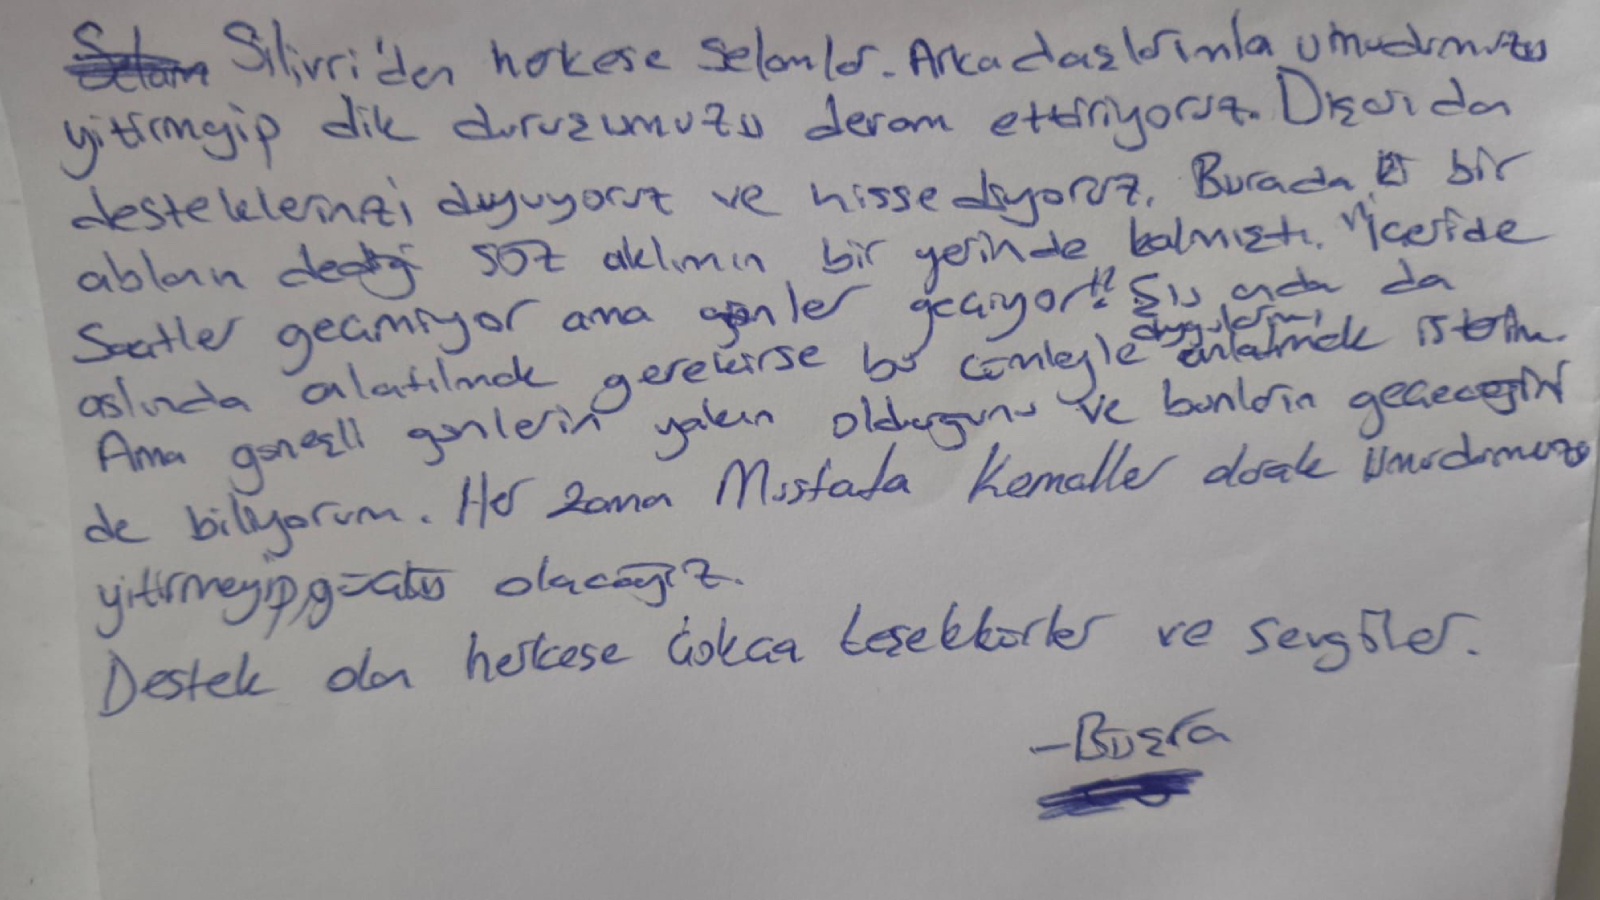 Silivri'den herkese Selamlar. Arkadaşlarımla umudumuzu
yitirmeyip dik duruşumuzu devam ettiriyoruz. Dışarıdan
desteklerinizi duyuyoruz ve hissediyoruz. Burada bir
ablanın dediği söz aklımın bir yerinde kalmıştı. "İçeride
Saatler geçmiyor ama günler geçiyor!" Şu anda da
aslında anlatılmak gerekirse bu cümleyle duygularımı anlatmak isterim.
Ama güneşli günlerin yakın olduğunu ve bunların geçeceğini
de biliyorum. Her zaman Mustafa Kemaller olarak Umudumuzu
yitirmeyip, güçlü olacağız.
Destek olan herkese Çokça teşekkürler ve sevgiler.
-Büşra